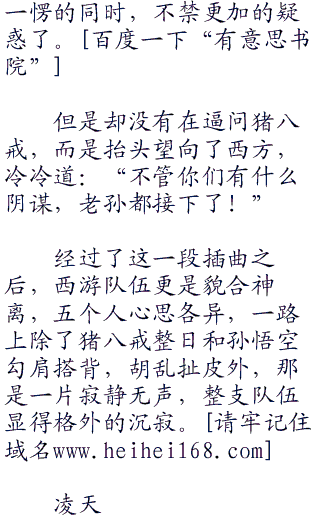 一愣的同时，不禁更加的疑
惑了。[百度一下“有意思书
院”]
但是却没有在逼问猪八
戒，而是抬头望向了西方，
冷冷道：“不管你们有什么
阴谋，老孙都接下了！”
经过了这一段插曲之
后，西游队伍更是貌合神
离，五个人心思各异，一路
上除了猪八戒整日和孙悟空
勾肩搭背，胡乱扯皮外，那
是一片寂静无声，整支队伍
显得格外的沉寂。[请牢记住
域名www.heihei168.com]
凌天